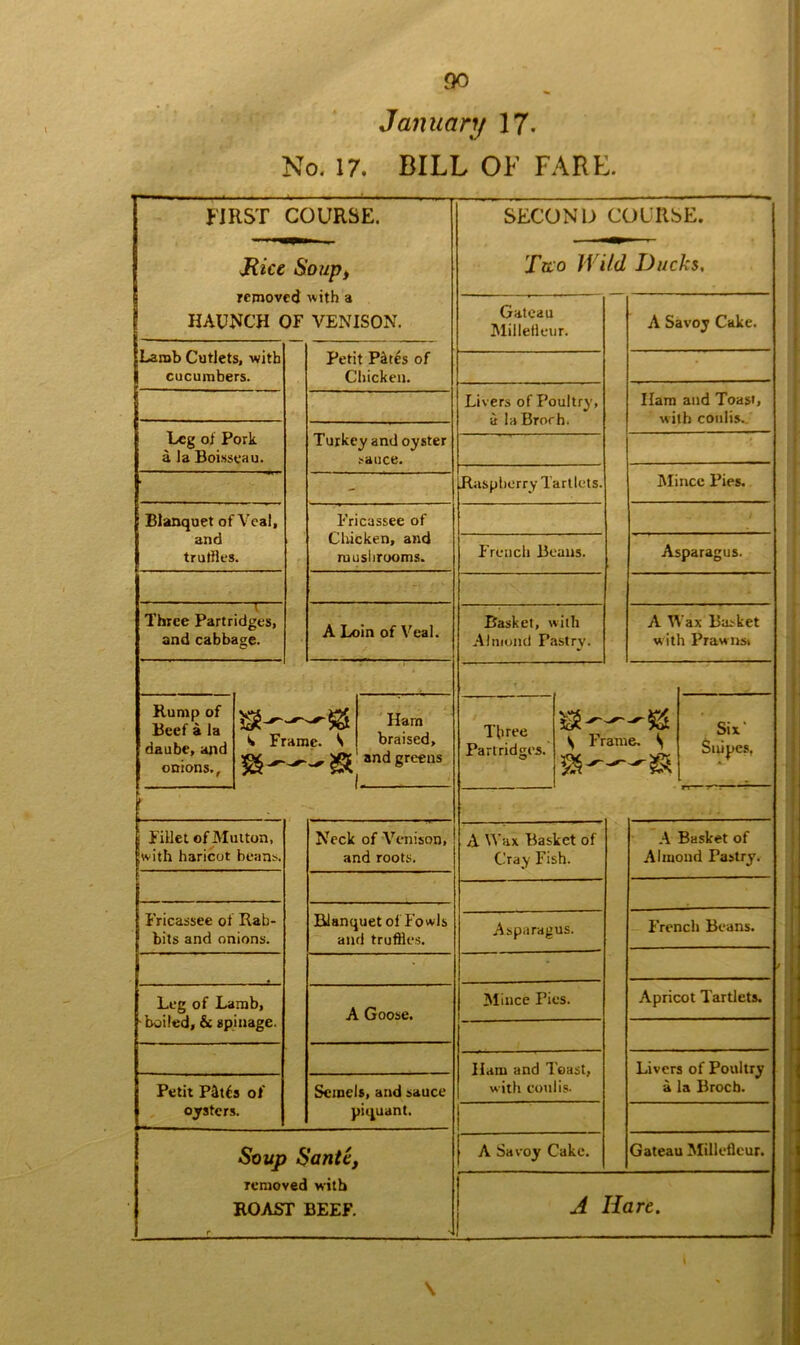 90
January 17.
No. 17. BILL OF FARE.
FIRST COURSE.
Rice Soup,
removed with a
HAUNCH OF VENISON.
Lamb Cutlets, with
cucumbers.
Petit Pâtés of
Chicken.
Leg of Pork
à la Boisseau.
Turkey and oyster
sauce.
Blanquet of Veal,
and
truffles.
Fricassee of
Chicken, and
mushrooms.
Three Partridges,
and cabbage.
A Loin of Veal.
Rump of
Beef à la
daube, and
onions.
Frame.
Ham
braised,
and greens
Fillet of Mutton,
with haricot beans.
Neck of Venison,
and roots.
Fricassee of Rab-
bits and onions.
Blanquet of Fowls
and truffles.
Leg of Lamb,
boiled, & spinage.
A Goose.
Petit Pâtés of
oysters.
Semels, and sauce
piquant.
Soup Santé,
removed with
ROAST BEEF.
SECOND COURSE.
Two Wild Ducks.
Gateau
Millefleur.
A Savoy Cake.
Livers of Poultry,
à la Broch.
Ham and Toast,
with coulis.
Raspberry Tartlets.
Mince Pies.
French Beans.
Asparagus.
Basket, with
Almond Pastry.
A Wax Basket
with Prawns.
Three
Partridges.
Frame.
Six
Snipes.
A Wax Basket of
Cray Fish.
A Basket of
Almond Pastry.
Asparagus.
French Beans.
Mince Pies.
Apricot Tartlets.
Ham and Toast,
with coulis.
Livers of Poultry
à la Broch.
A Savoy Cake.
Gateau Millefleur.
A Hare.